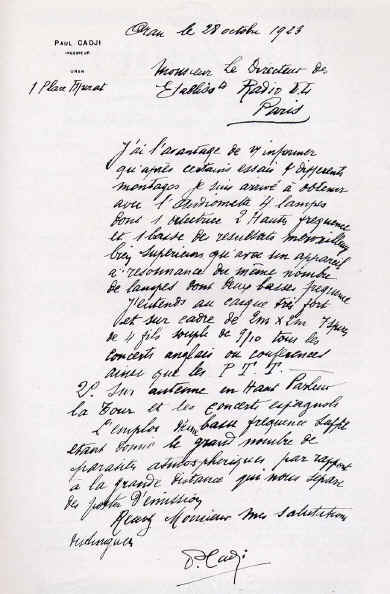 Oran le 28 octobre 1923
PAUL CADJI
INGENIEUR
ORAN
1 Place Murat
Monsieur Le Directeur des
Radio
Paris
J'ai l'avantage de informer
qu'après certains essais différents
montages je suis arrivé à obtenir
avec 4 lampes
dont 1 détectrice 2 Haute fréquence
et 1 basse des resultats merveilleux
bien supérieurs qu'avec un appareil
à résonnance du même nombre
de lampes dont deux basse fréquence
J'entends au casque très fort
et sur cadre de 2m x 2m 7 spires
de 4 fils souple de 9/10 tous les
concerts anglais ou conférences
ainsi que les P.T.T.
2°. Sur antenne en Haut Parleur
la Tour et les concerts espagnols
L'emploi d'une basse fréquence suffit
étant donné le grand nombre de
parasites atmosphériques par rapport
à la grande distance qui nous sépare
des postes d'émission
Recevez Monsieur mes salutations
distinguées
P. Cadji